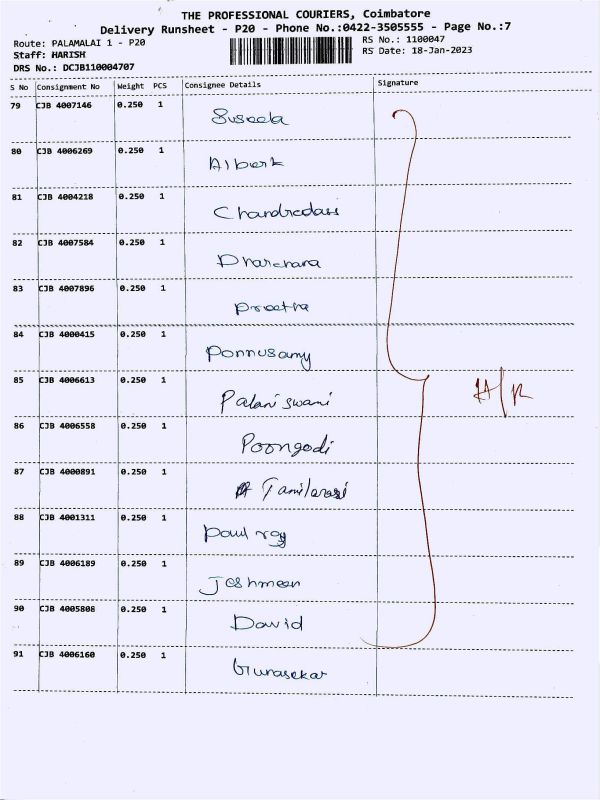 THE PROFESSIONAL COURIERS, Coimbatore
Delivery Runsheet - P20 - Phone No.:0422-3505555 - Page No.:7
Route: PALAMALAI 1 - P20
RS No.: 1100047
Staff: HARISH
RS Date: 18-Jan-2023
DRS No.: DCJB110004707
S No Consignment No Weight PCS Consignee Details Signature
79 CJB 4007146 0.250 1 Suseela
80 CJB 4006269 0.250 1 Albert
81 CJB 4004218 0.250 1 Chandredass
82 CJB 4007584 0.250 1
83 CJB 4007896 0.250 1 Preetha
84 CJB 4000415 0.250 1 Ponnusamy
85 CJB 4006613 0.250 1 Palani swami
86 CJB 4006558 0.250 1 Poongodi
87 CJB 4000891 0.250 1 Tamilarasi
88 CJB 4001311 0.250 1 Paul ray
89 CJB 4006189 0.250 1 Jeshmeen
90 CJB 4005808 0.250 1 David
91 CJB 4006160 0.250 1 Gunasekar